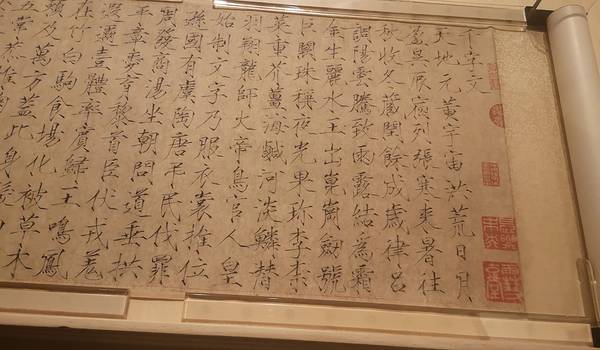 千字文
天地元黃宇宙洪荒日月
盈昃辰宿列張寒来暑往
秋收冬藏閏餘成歲律呂
調陽雲騰致雨露結為霜
金生麗水玉出崑崗劔號
巨闕珠稱夜光果珍李柰
菜重芥薑海鹹河淡鱗潛
羽翔龍師火帝鳥官人皇
始制文字乃服衣裳推位
遜國有虞陶唐弔民伐罪
周發商湯坐朝問道垂拱
平章愛育黎首臣伏戎羌
遐邇壹體率賓歸王鳴鳳
在竹白駒食場化被草木
賴及萬方蓋此身髮
五常恭惟